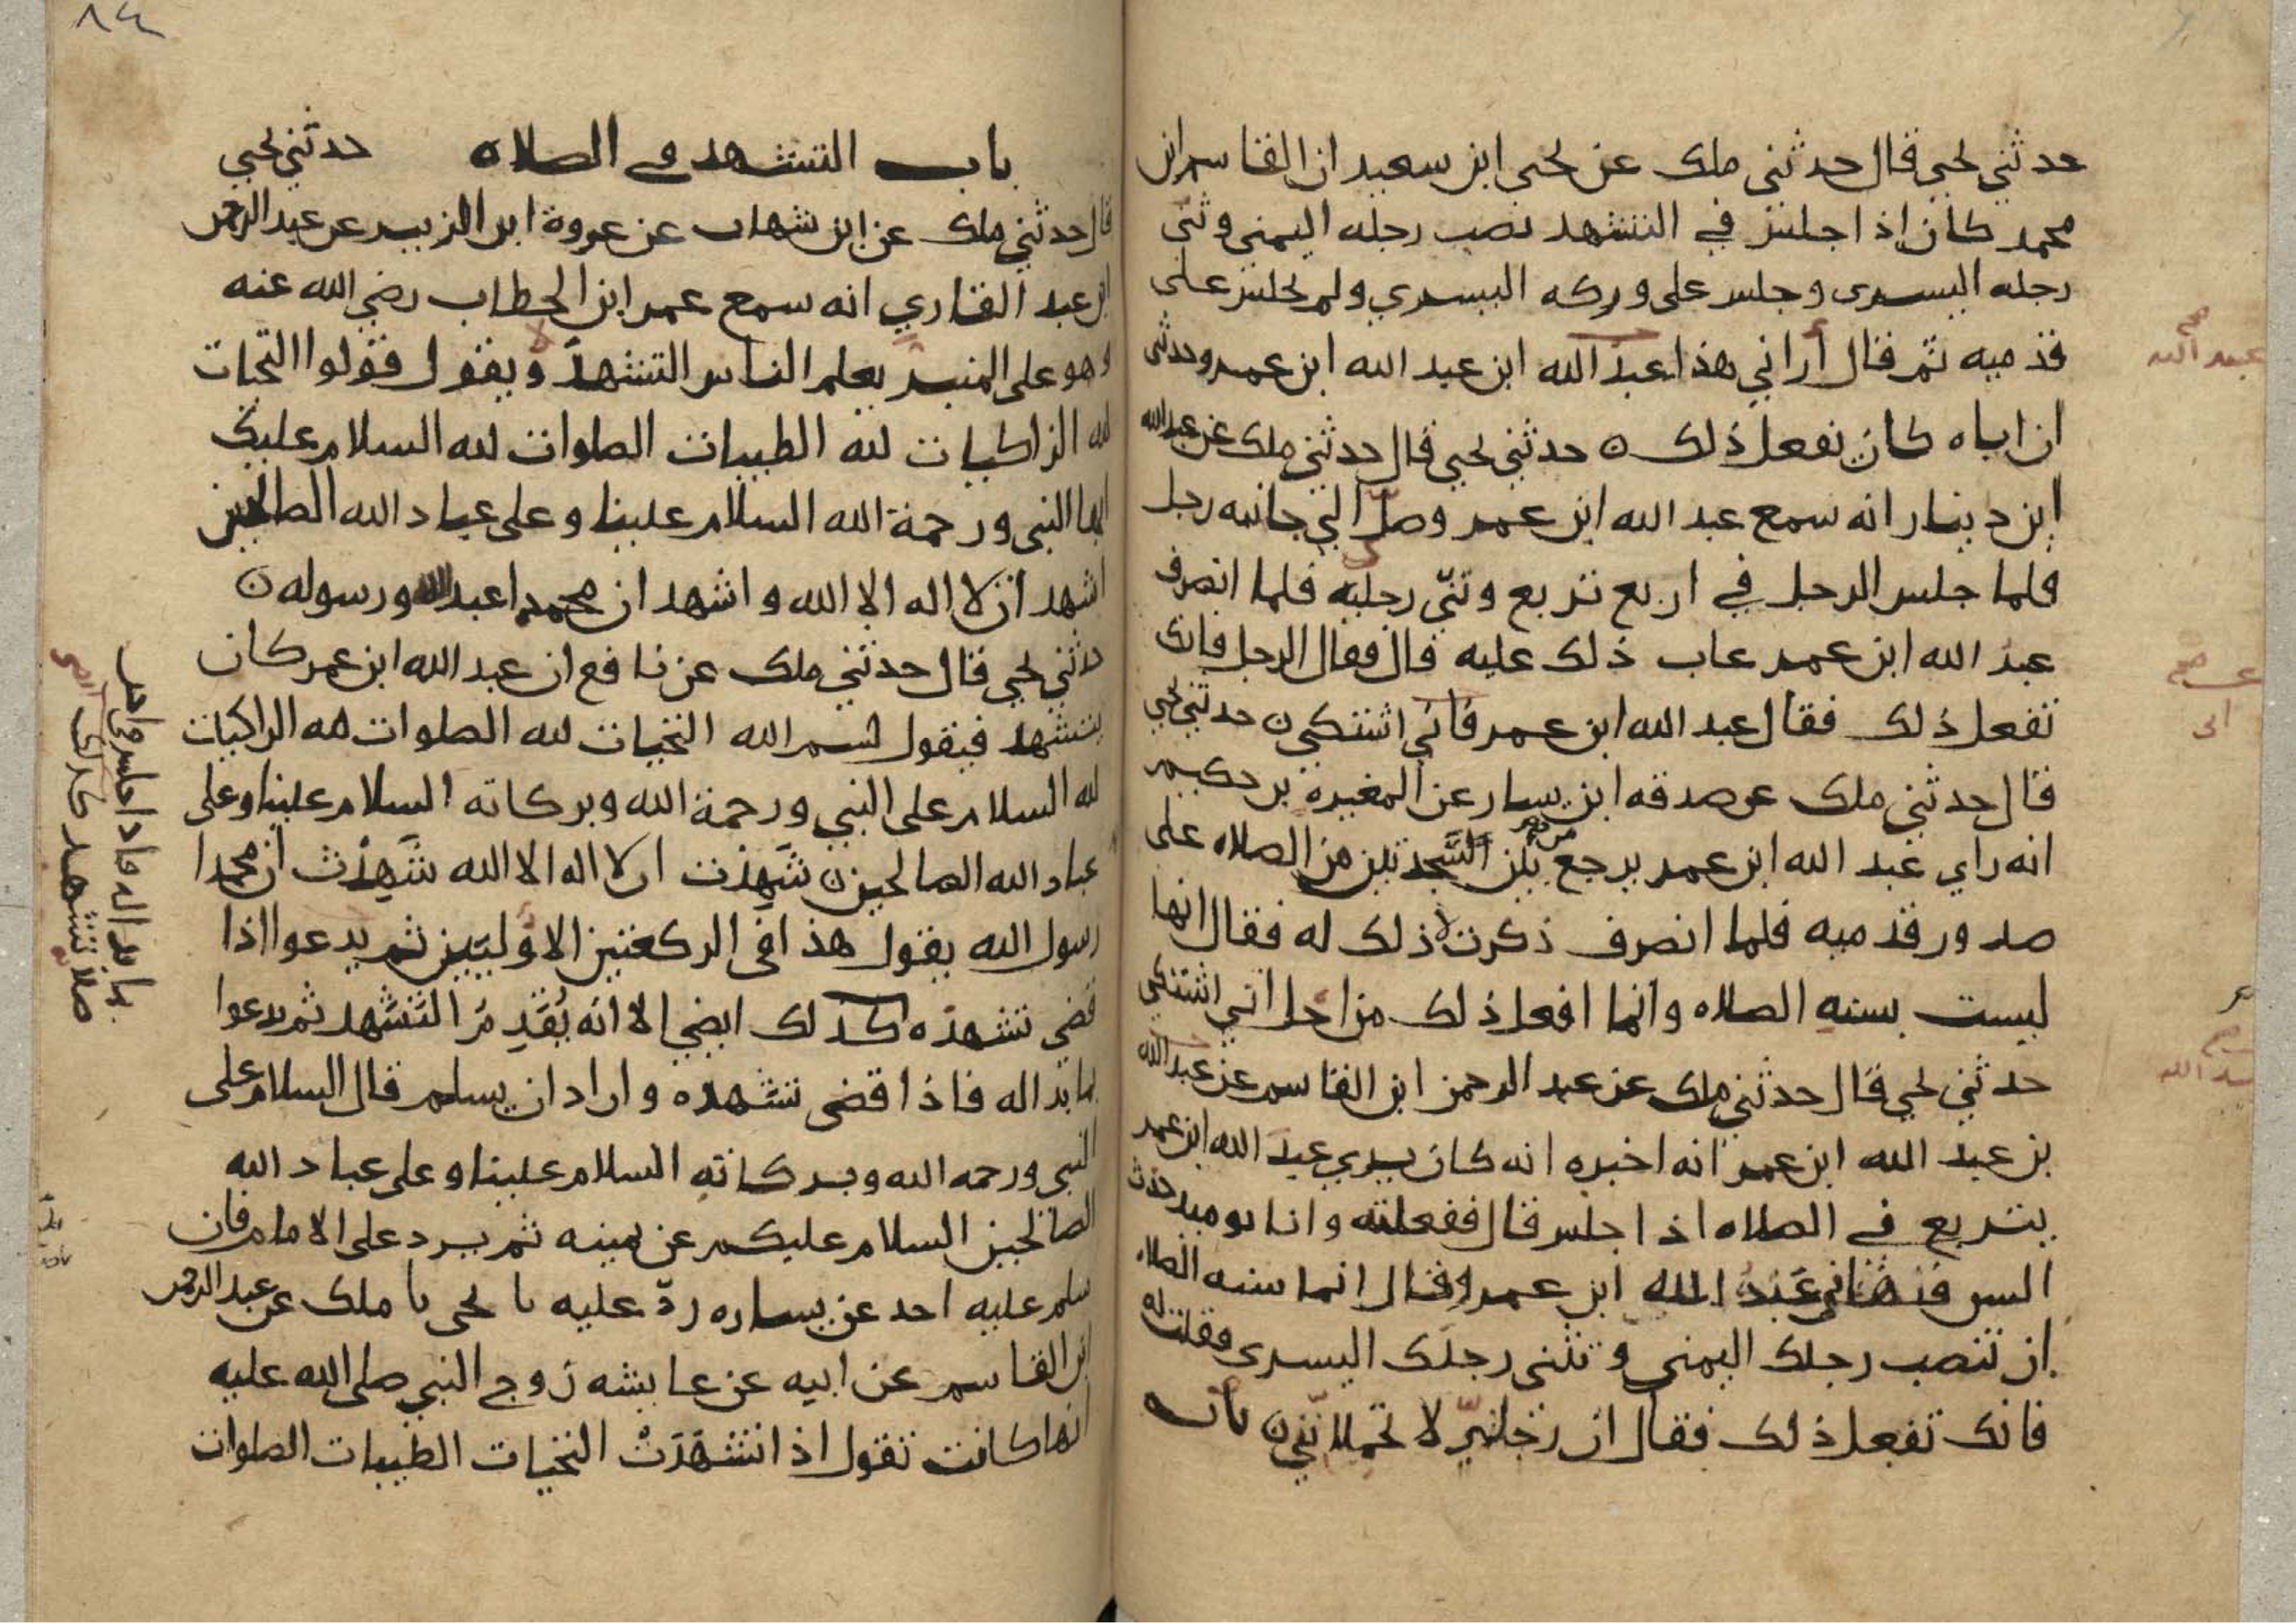 حدثني يحيي قال حدثني ملك عن يحيى ابن سعيد ان القاسم ابن
محمد كان اذا جلس في التشهد نصب رجله اليمنى وثنى
رجله اليسرى وجلس على وركه اليسري ولم يجلس على
قدميه ثم قال أراني هذا عبد الله ابن عبد الله ابن عمر وحدثني
ان اباه كان يفعل ذلك ن حدثني يحيي قال حدثني ملك عن عبد الله
ابن دينار انه سمع عبد الله ابن عمر وصلّ الي جانبه رجل
فلما جلس الرجل في اربع تربع وثنّي رجليه فلما انصرف
عبد الله ابن عمر عاب ذلك عليه قال فقال الرجل فانك
تفعل ذلك فقال عبد الله ابن عمر فاني اشتكي ن حدثني يحيي
قال حدثني ملك عن صدقه ابن يسار عن المغيرة بن حكيم
انه راي عبد الله ابن عمر يرجع بين السَّجدتين من الصلاه على
صدور قدميه فلما انصرف ذكرت ذلك له فقال انها
ليست بسنه الصلاه وانما افعل ذلك من اجل اني اشتكي
حدثني يحيي قال حدثني ملك عن عبد الرحمن ابن القاسم عن عبد الله
بن عبد الله ابن عمر انه اخبره انه كان يري عبد الله ابن عمر
يتربع في الصلاه اذا جلس قال ففعلته وانا يوميذ حدث
السن فنهاني عَبْدُ الله ابن عمر وقال انما سنه الصلاه
ان تنصب رجلك اليمنى وتثنى رجلك اليسرى فقلت له
فانك تفعل ذلك فقال ان رجليّ لا تحملانّي ن باب
عبد الله
صح
صح
الى
صح
عبد الله
٨٤
باب التشهد في الصلاه حدثني يحيي
قال حدثني ملك عن ابن شهاب عن عروة ابن الزبير عن عبد الرحمن
ابن عبد القاري انه سمع عمر ابن الخطاب رضي الله عنه
وهو على المنبر يعلم الناس التشهدَ ويقول قولوا التحيات
لله الزاكيات لله الطيبات الصلوات لله السلام عليك
ايها النبي ورحمة الله السلام علينا وعلى عباد الله الصالحين
اشهد ان لا اله الا الله واشهد ان محمدا عبد الله ورسوله ن
حدثني يحيي قال حدثني ملك عن نافع ان عبد الله ابن عمر كان
يتشهد فيقول بسم الله التحيات لله الصلوات لله الزاكيات
لله السلام على النبي ورحمة الله وبركاته السلام علينا وعلى
عباد الله الصالحين ن شَهِدْت ان لا اله الا الله شَهِدْت ان محمدا
رسول الله يقول هذا في الركعتين الاوُليَين ثم يدعوا اذا
قضى تشهدَه كذلك ايضي الا انه يُقَدِمُ التَشَهُد ثم يدعوا
بما بدا له فاذا قضى تشهده واراد ان يسلم قال السلام على
النبي ورحمه الله وبركاته السلام علينا وعلى عباد الله
الصالحين السلام عليكم عن يمينه ثم يرد على الامام فان
سلم عليه احد عن يساره ردّ عليه نا يحي نا ملك عن عبد الرحمن
ابن القاسم عن ابيه عن عايشه زوج النبي صلى الله عليه
انها كانت تقول اذا تشهّدَتْ التحيات الطيبات الصلوات
بما بدا له فاذا جلس في اخر
صلاته تشهد كذلك